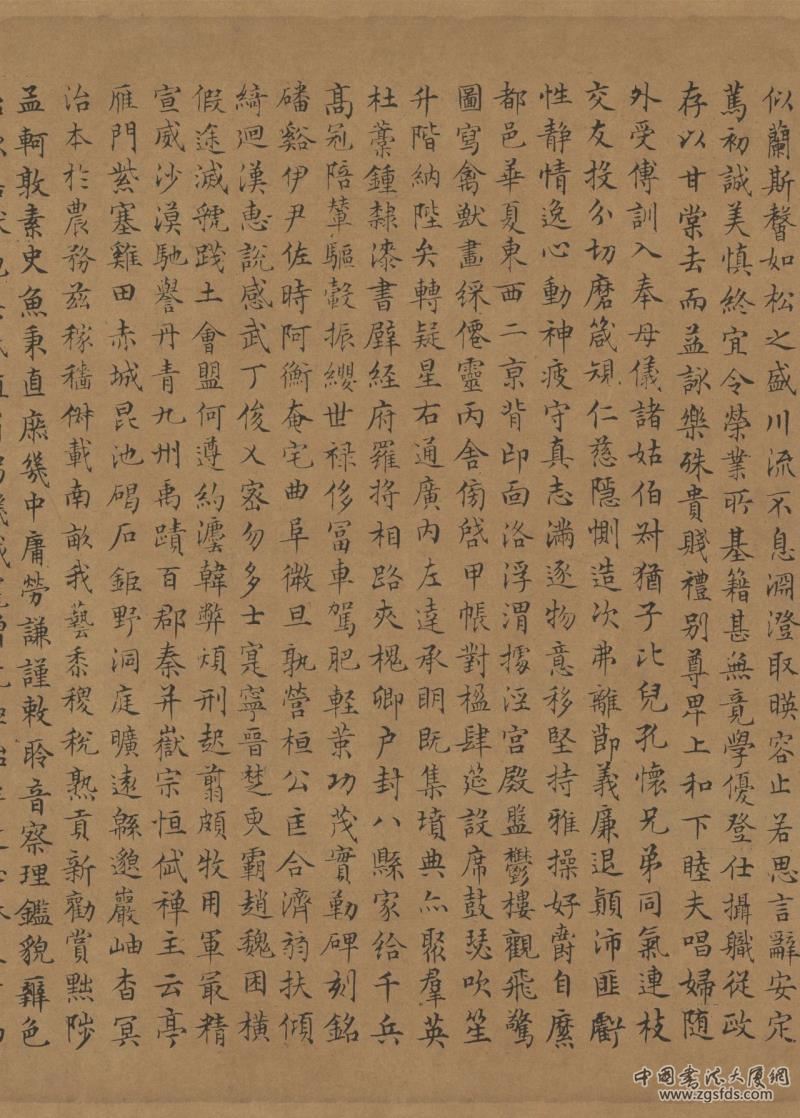 似蘭斯馨如松之盛川流不息淵澄取暎容止若思言辭安定
篤初誠美慎終宜令榮業所基籍甚無竟學優登仕攝職從政
存以甘棠去而益詠樂殊貴賤禮別尊卑上和下睦夫唱婦随
外受傅訓入奉母儀諸姑伯叔猶子比兒孔懷兄弟同氣連枝
交友投分切磨箴規仁慈隱惻造次弗離節義廉退顛沛匪虧
性静情逸心動神疲守真志滿逐物意移堅持雅操好爵自縻
都邑華夏東西二京背邙面洛浮渭據涇宮殿盤鬱樓觀飛驚
圖寫禽獸畫綵僊靈丙舍傍啓甲帳對楹肆筵設席鼓瑟吹笙
升階納陛矣轉疑星右通廣内左達承明既集墳典亦聚羣英
杜藁鍾隸漆書壁經府羅將相路夾槐卿户封八縣家給千兵
高冠陪輦驅轂振纓世禄侈富車駕肥軽策功茂實勒碑刻銘
磻谿伊尹佐時阿衡奄宅曲阜微旦孰營桓公匡合濟弱扶傾
綺迴漢惠說感武丁俊乂密勿多士寔寧晉楚更霸趙魏困橫
假途滅虢踐土會盟何遵約灋韓弊煩刑起翦頗牧用軍最精
宣威沙漠馳譽丹青九州禹蹟百郡秦并嶽宗恒岱禅主云亭
雁門紫塞雞田赤城昆池碣石鉅野洞庭曠遠緜邈巖岫杳冥
治本於農務兹稼穡俶載南畝我藝黍稷稅熟貢新勸賞黜陟
孟軻敦素史魚秉直庶幾中庸勞謙謹敕聆音察理鑑貌辯色
中國書法大廈網
www.zgsfds.com